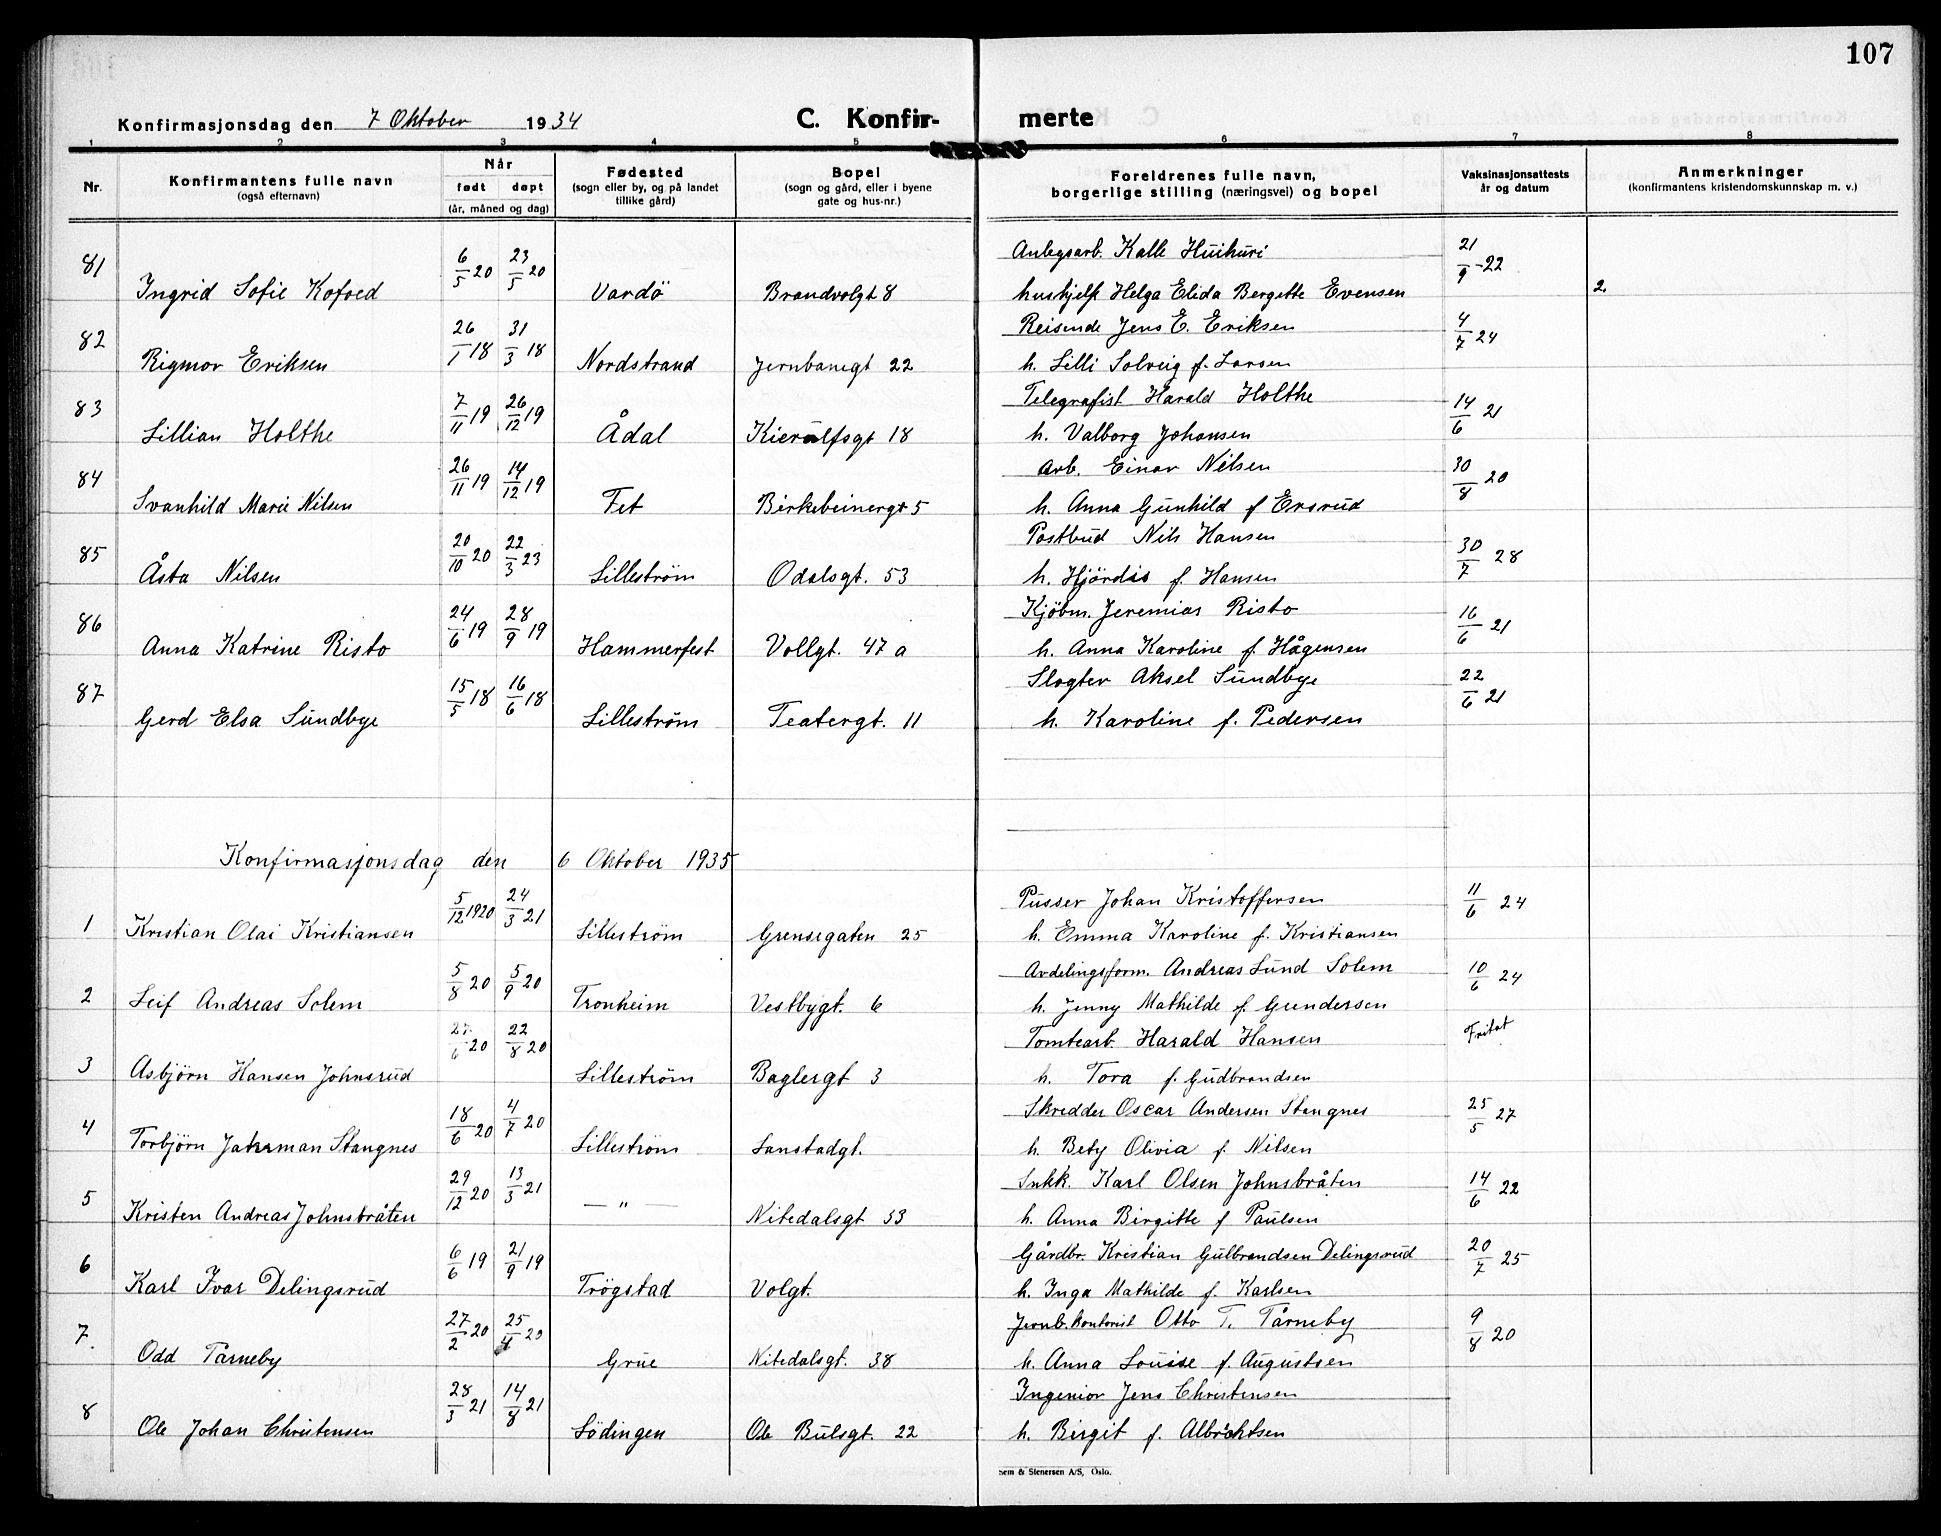 107
Konfirmasjonsdag den 7 Oktober 1934 C. Konfir- merte
1 2 3 4 5 6 7 8
Nr. Konfirmantens fulle navn (også efternavn) Når født døpt (år, måned og dag) Fødested (sogn eller by, og på landet tillike gård) Bopel (sogn og gård, eller i byene gate og hus-nr.) Foreldrenes fulle navn, borgerlige stilling (næringsvei) og bopel Vaksinasjonsattests år og datum Anmerkninger (konfirmantens kristendomskunnskap m. v.)
81 Ingrid Sofie Kofoed 6/5 20 23/5 20 Vardö Brandvolgt 8 Anlegsarb. Kalle Huihuri 21/9 -22
hushjelp Helga Elida Bergitte Evensen 2.
82 Rigmor Eriksen 26/1 18 31/3 18 Nordstrand Jernbanegt 22 Reisende Jens E. Eriksen 4/7 24
h. Lilli Solveig f. Larsen
83 Lillian Holthe 7/11 19 26/12 19 Ådal Kierulfsgt 18 Telegrafist Harald Holthe 14/6 21
h. Valborg Johansen
84 Svanhild Marie Nilsen 26/11 19 14/12 19 Fet Birkebeinergt 5 Arb. Einar Nilsen 30/8 20
h. Anna Gunhild f Ersrud
85 Åsta Nilsen 20/10 20 22/3 23 Lilleström Odalsgt. 53 Postbud Nils Hansen 30/7 28
h. Hjördis f. Hansen
86 Anna Katrine Risto 24/6 19 28/9 19 Hammerfest Vollgt. 47 a Kjöbm. Jeremias Risto 16/6 21
h. Anna Karoline f. Hågensen
87 Gerd Elsa Sundbye 15/5 18 16/6 18 Lilleström Teatergt. 11 Slagter Aksel Sundbye 22/6 21
h. Karoline f. Pedersen
Konfirmasjonsdag den 6 Oktober 1935
1 Kristian Olai Kristiansen 5/12 1920 24/3 21 Lilleström Grensegaten 25 Pusser Johan Kristoffersen 11/6 24
h. Emma Karoline f. Kristiansen
2 Leif Andreas Solem 5/8 20 5/9 20 Tronheim Vestbygt. 6 Avdelingsform. Andreas Lund Solem 10/6 24
h. Jenny Mathilde f. Gundersen
3 Asbjörn Hansen Johnsrud 27/6 20 22/8 20 Lilleström Baglergt 3 Tomtearb. Harald Hansen Fritat
h. Tora f. Gudbrandsen
4 Torbjörn Jahrman Stangnes 18/6 20 4/7 20 Lilleström Sanstadgt. Skredder Oscar Andersen Stangnes 25/5 27
h. Bety Olivia f. Nilsen
5 Kristen Andreas Johnsbråten 29/12 20 13/3 21 — " — Nitedalsgt 53 Snkk. Karl Olsen Johnsbråten 14/6 22
h. Anna Birgitte f Paulsen
6 Karl Ivar Delingsrud 6/6 19 21/9 19 Trögstad Volgt. Gårdbr. Kristian Gulbrandsen Delingsrud 20/7 25
h. Inga Mathilde f. Karlsen
7. Odd Tårneby 27/2 20 25/4 20 Grue Nitedalsgt. 38 Jernb. kontorist Otto T. Tårneby 9/8 20
h. Anna Louise f. Augustsen
8 Ole Johan Christensen 28/3 21 14/8 21 Lödingen Ole Bulsgt. 22 Ingeniør Jens Christensen
h. Birgit f. Albrichtsen
Sem & Stenersen A/S, Oslo.